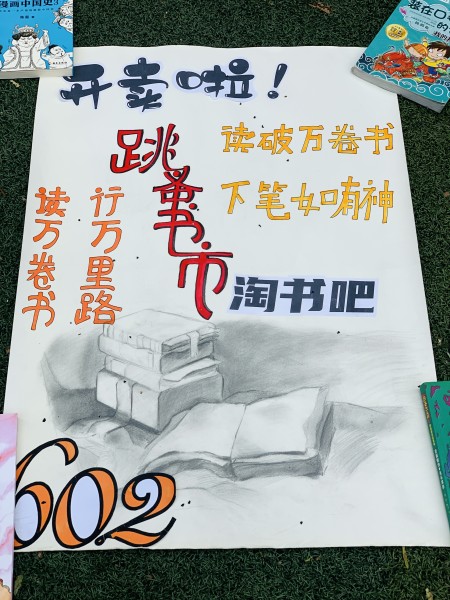 漫画中国史
开卖啦！
跳蚤书市
读破万卷书
下笔如有神
读万卷书
行万里路
淘书吧
602
装在口
的